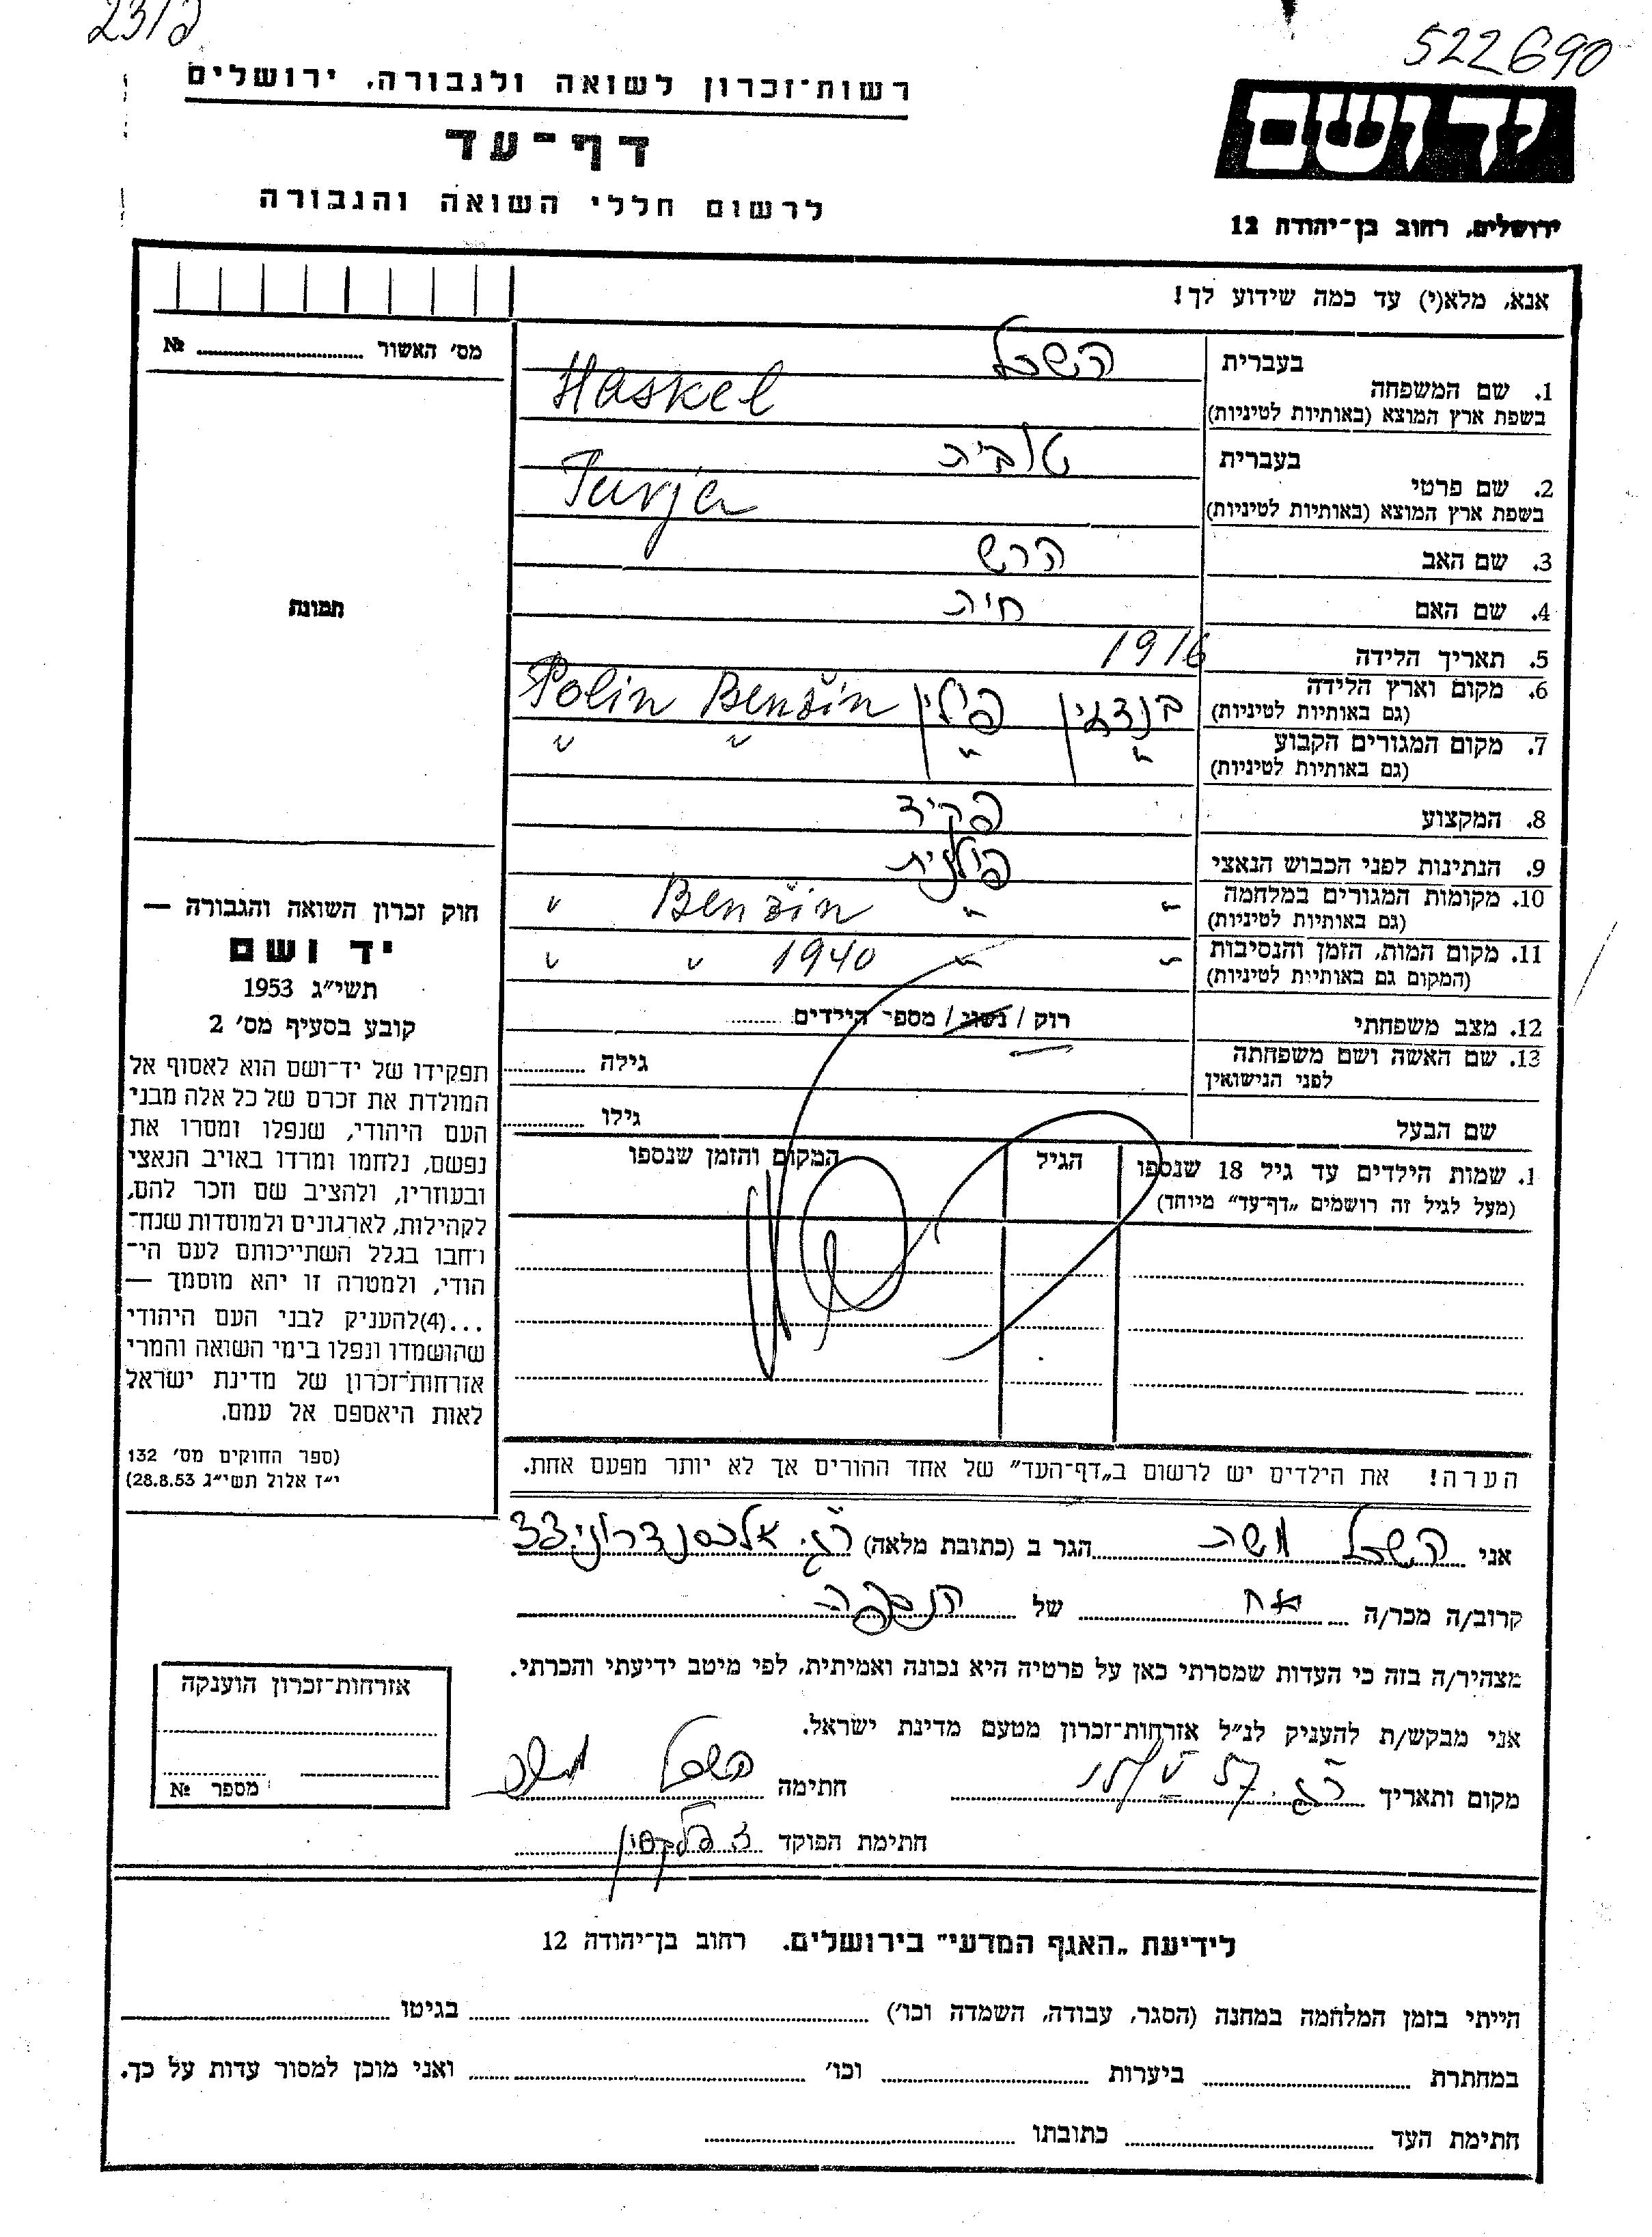 522690
23/2
יד ושם
ירושלים, רחוב בן־יהודה 12
רשות־זכרון לשואה ולגבורה, ירושלים
דף־עד
לרשום חללי השואה והגבורה
אנא, מלא(י) עד כמה שידוע לך!
מס׳ האשור № ........
תמונה
1. שם המשפחה בעברית השכל
בשפת ארץ המוצא (באותיות לטיניות) Haskel
2. שם פרטי בעברית טובית
בשפת ארץ המוצא (באותיות לטיניות)
3. שם האב הרש
4. שם האם חיה
5. תאריך הלידה 1916
6. מקום וארץ הלידה בנדזין פולין Benžin Polin
(גם באותיות לטיניות)
7. מקום המגורים הקבוע " " " "
(גם באותיות לטיניות)
8. המקצוע פקיד
9. הנתינות לפני הכבוש הנאצי פולנית
10. מקומות המגורים במלחמה " " Benžin "
(גם באותיות לטיניות)
11. מקום המות, הזמן והנסיבות " " 1940 " "
(המקום גם באותיות לטיניות)
12. מצב משפחתי רוק / נשוי / מספר הילדים ........
13. שם האשה ושם משפחתה גילה ........
לפני הנישואין
שם הבעל גילו ........
1. שמות הילדים עד גיל 18 שנספו הגיל המקום והזמן שנספו
(מעל לגיל זה רושמים „דף־עד" מיוחד)
חוק זכרון השואה והגבורה —
יד ושם
תשי״ג 1953
קובע בסעיף מס׳ 2
תפקידו של יד־ושם הוא לאסוף אל
המולדת את זכרם של כל אלה מבני
העם היהודי, שנפלו ומסרו את
נפשם, נלחמו ומרדו באויב הנאצי
ובעוזריו, ולהציב שם וזכר להם,
לקהילות, לארגונים ולמוסדות שנח־
רבו בגלל השתייכותם לעם הי־
הודי, ולמטרה זו יהא מוסמך —
...(4)להעניק לבני העם היהודי
שהושמדו ונפלו בימי השואה והמרי
אזרחות־זכרון של מדינת ישראל
לאות היאספם אל עמם.
(ספר החוקים מס׳ 132
י״ז אלול תשי״ג 28.8.53)
הערה! את הילדים יש לרשום ב„דף־העד" של אחד ההורים אך לא יותר מפעם אחת.
אני השכל משה הגר ב (כתובת מלאה) ר״ג. אלכסנדרוני 33
קרוב/ה מכר/ה אח של הנספה
מצהיר/ה בזה כי העדות שמסרתי כאן על פרטיה היא נכונה ואמיתית, לפי מיטב ידיעתי והכרתי.
אני מבקש/ת להעניק לנ״ל אזרחות־זכרון מטעם מדינת ישראל.
מקום ותאריך ר״ג. 57 V חתימה השכל משה
חתימת הפוקד
אזרחות־זכרון הוענקה
מספר №
לידיעת „האגף המדעי" בירושלים. רחוב בן־יהודה 12
הייתי בזמן המלחמה במחנה (הסגר, עבודה, השמדה וכו׳) ........ בגיטו ........
במחתרת ........ ביערות ........ וכו׳ ........ ואני מוכן למסור עדות על כך.
חתימת העד ........ כתובתו ........